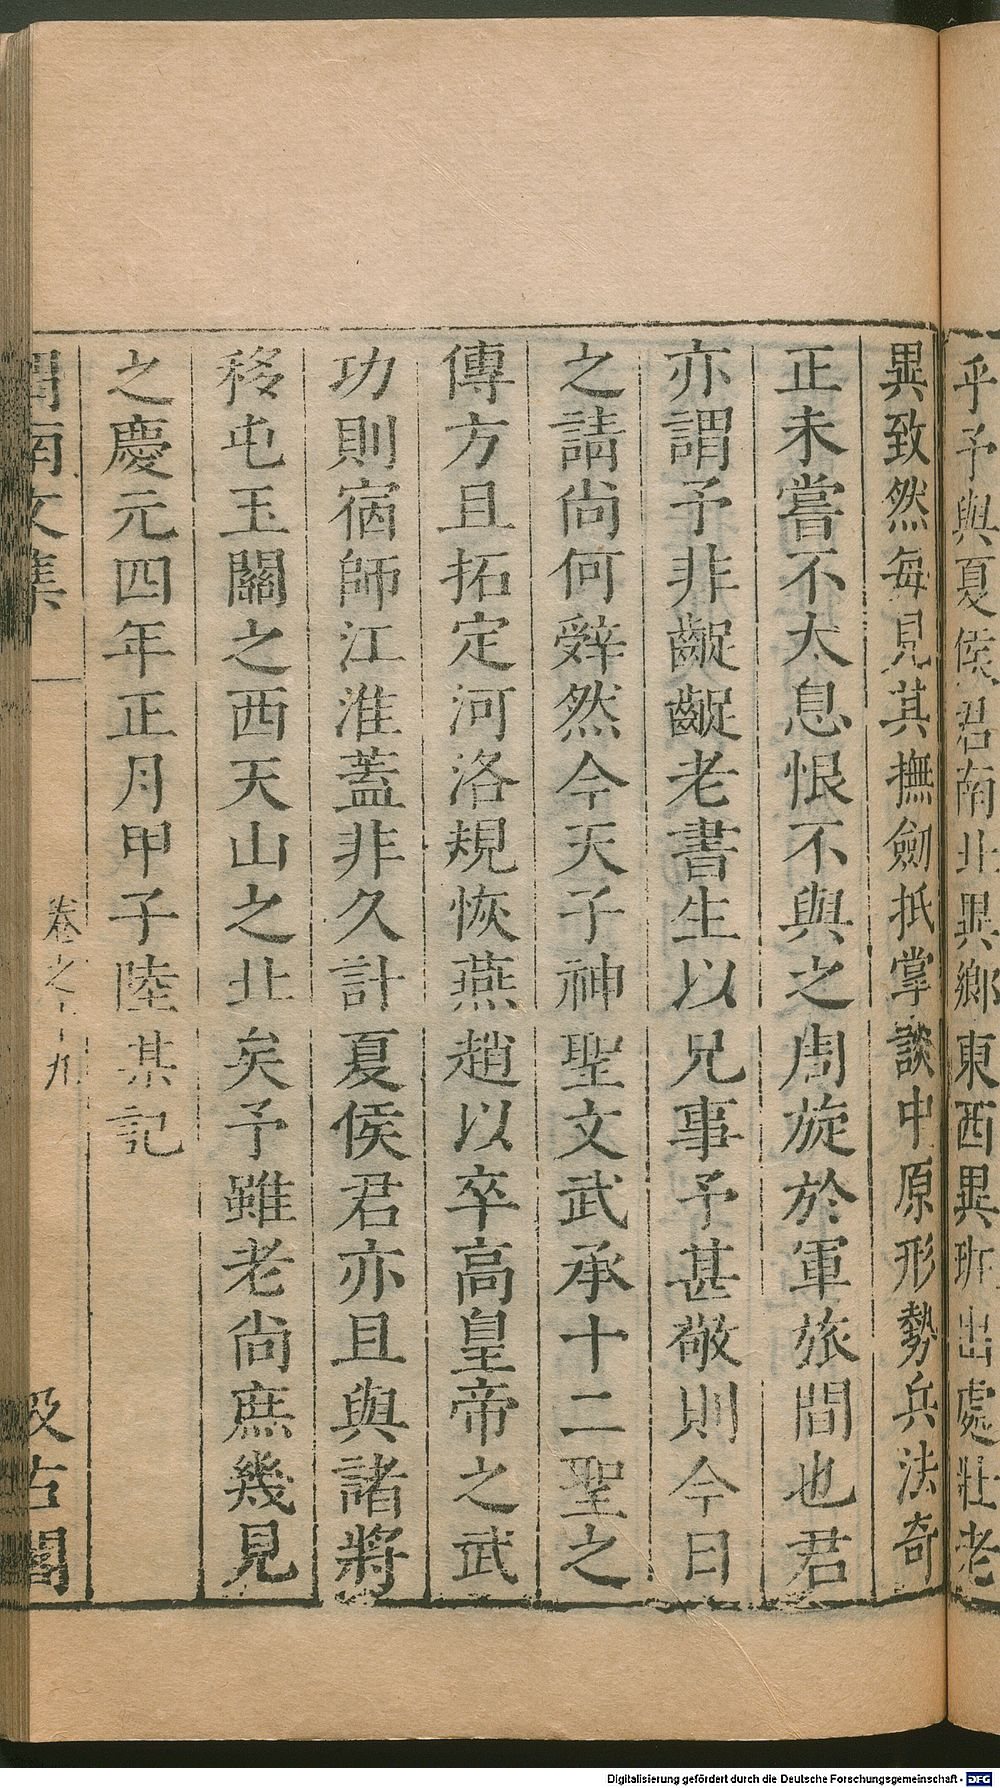 乎予與夏侯君南北異鄉東西異班出處壯老
異致然每見其撫劒抵掌談中原形勢兵法奇
正未嘗不太息恨不與之周旋於軍旅間也君
亦謂予非齪齪老書生以兄事予甚敬則今日
之請尚何辭然今天子神聖文武承十二聖之
傳方且拓定河洛規恢燕趙以卒高皇帝之武
功則宿師江淮蓋非久計夏侯君亦且與諸將
移屯玉關之西天山之北矣予雖老尚庶幾見
之慶元四年正月甲子陸某記
渭南文集 卷之十九 汲古閣
Digitalisierung gefördert durch die Deutsche Forschungsgemeinschaft - DFG